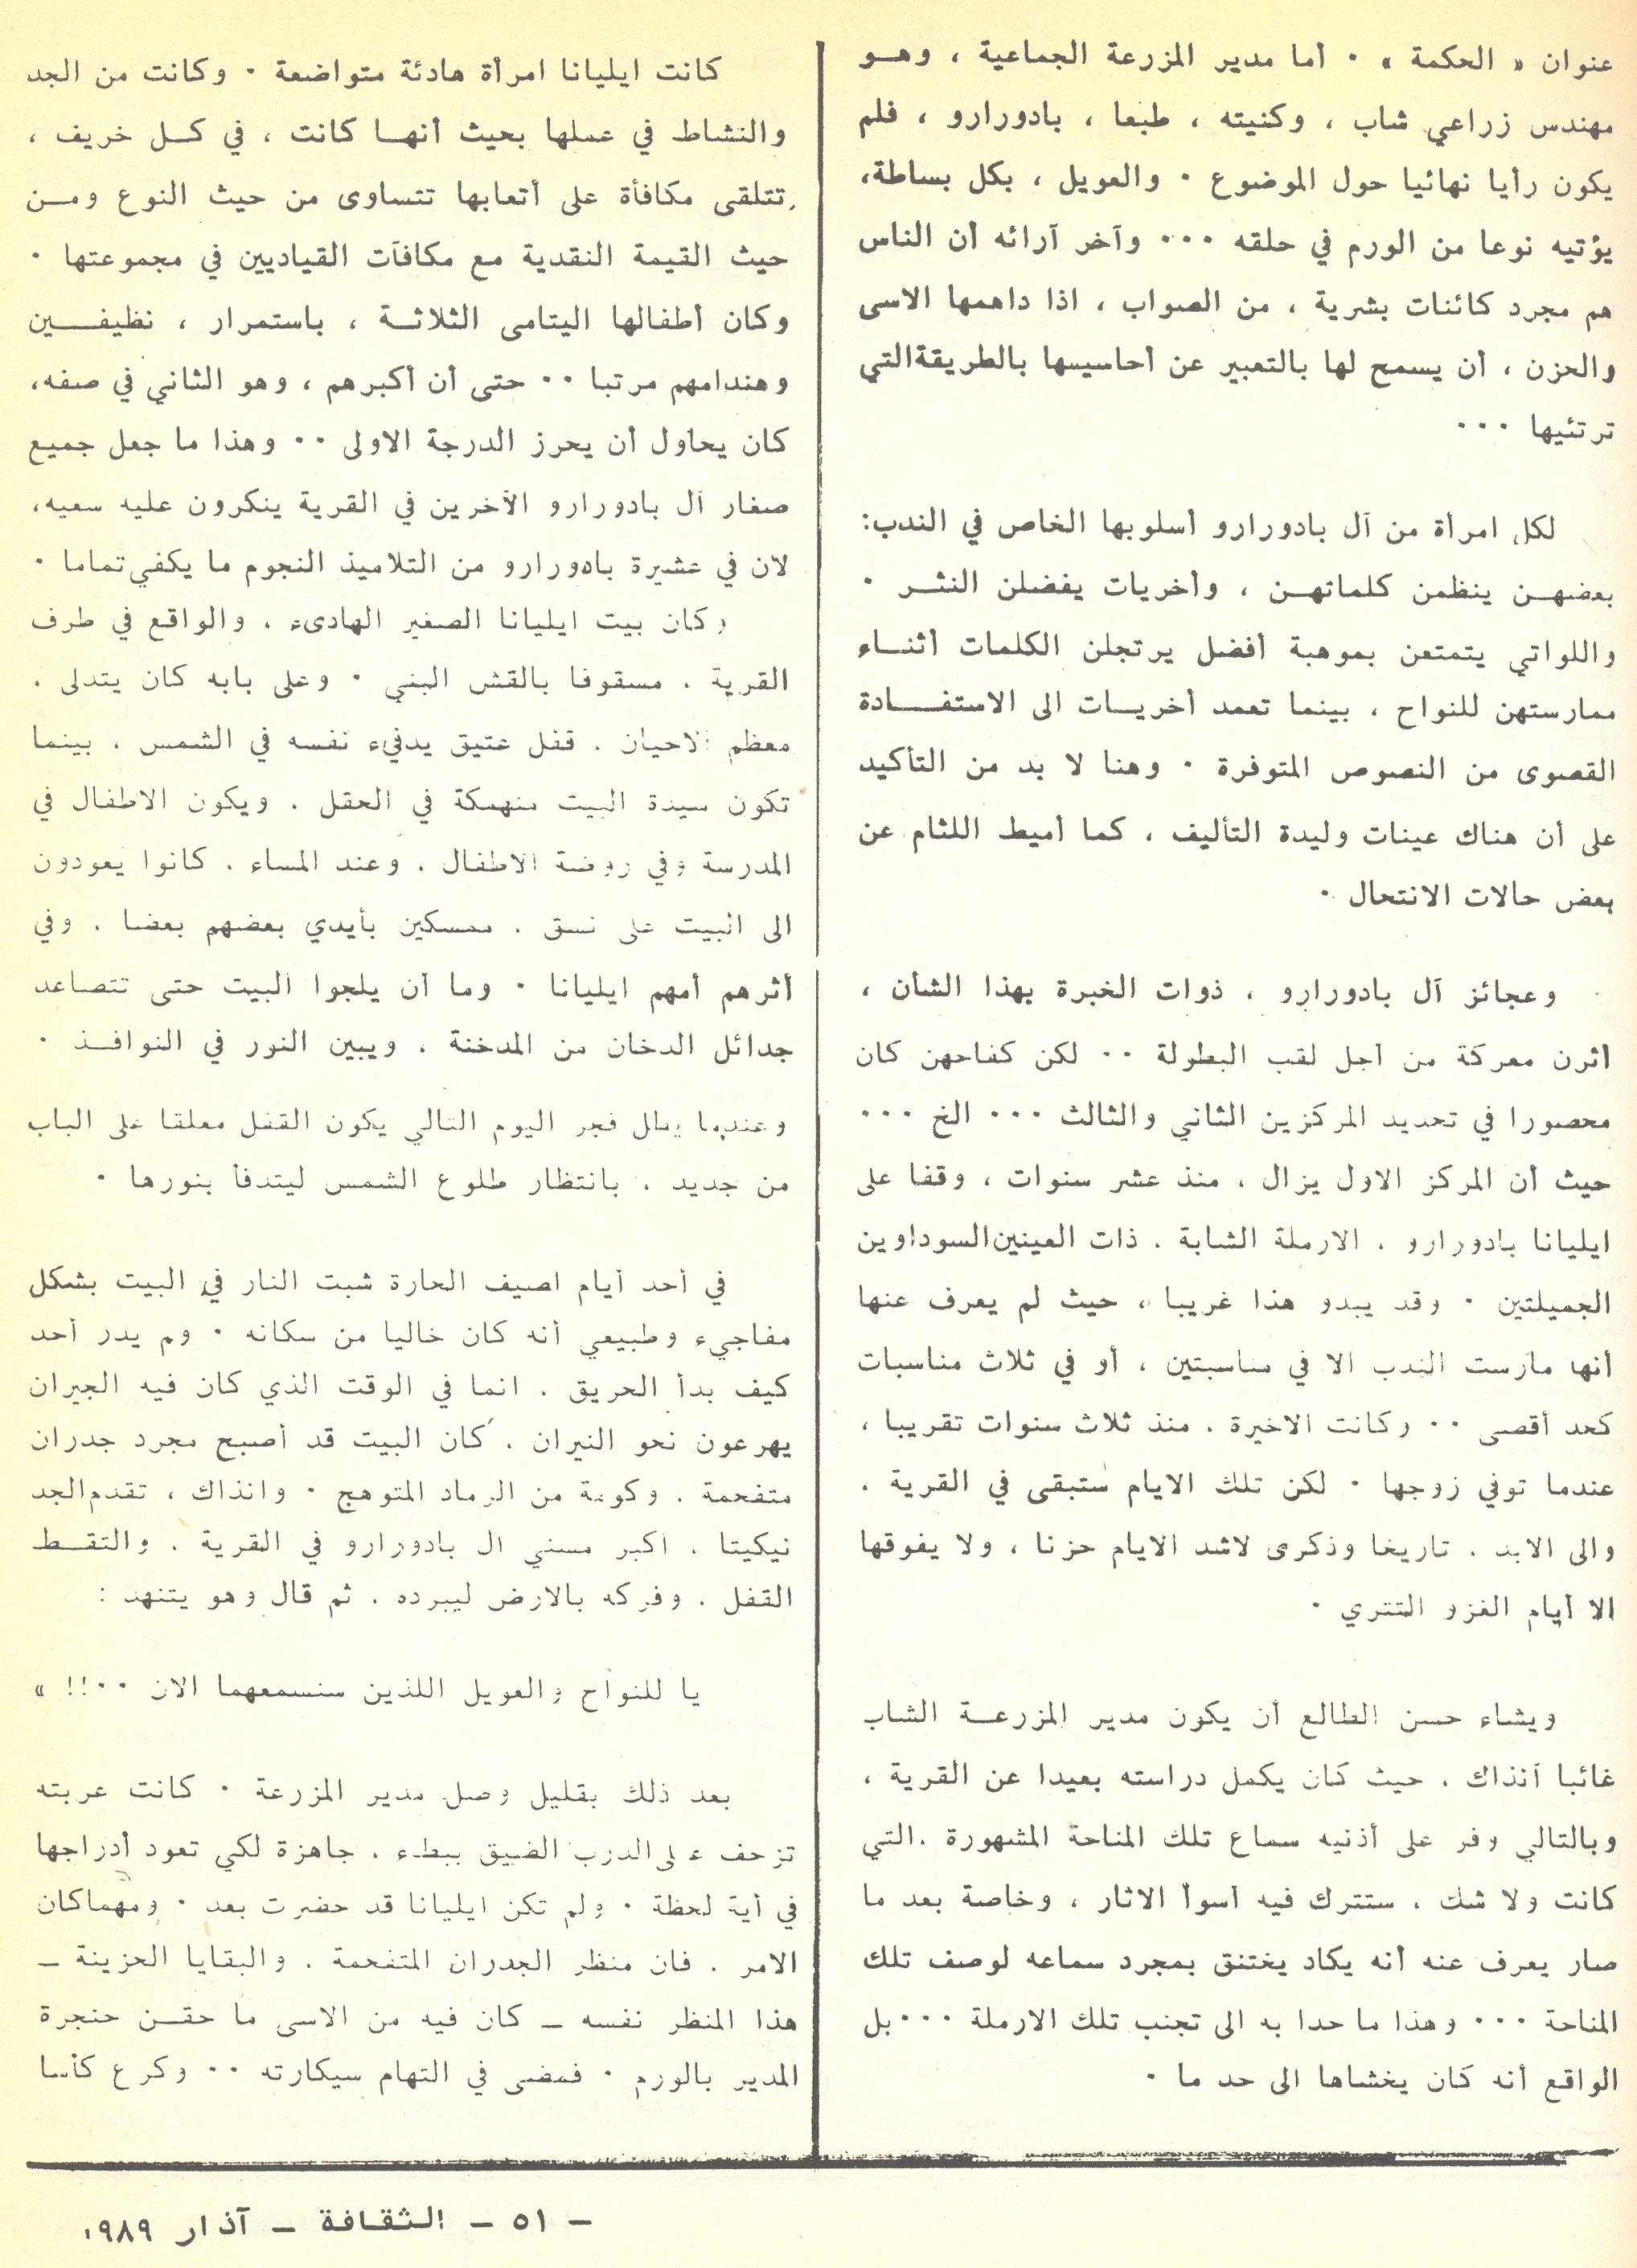 عنوان « الحكمة » ٠ أما مدير المزرعة الجماعية ، وهـو
مهندس زراعي شاب ، وكنيته ، طبعا ، بادورارو ، فلم
يكون رأيا نهائيا حول الموضوع ٠ والعويل ، بكل بساطة،
يؤتيه نوعا من الورم في حلقه ٠٠٠ وآخر آرائه أن الناس
هم مجرد كائنات بشرية ، من الصواب ، اذا داهمها الاسى
والحزن ، أن يسمح لها بالتعبير عن أحاسيسها بالطريقة التي
ترتئيها ٠٠٠
لكل امرأة من آل بادورارو أسلوبها الخاص في الندب:
بعضهـن ينظمن كلماتهـن ، وأخريات يفضلن النثـر ٠
واللواتي يتمتعن بموهبة أفضل يرتجلن الكلمات أثنـاء
ممارستهن للنواح ، بينما تعمد أخريـات الى الاستفـادة
القصوى من النصوص المتوفرة ٠ وهنا لا بد من التأكيد
على أن هناك عينات وليدة التأليف ، كما أميط اللثام عن
بعض حالات الانتحال ٠
وعجائز آل بادورارو ، ذوات الخبرة بهذا الشأن ،
أثرن معركة من أجل لقب البطولة ٠٠ لكن كفاحهن كان
محصورا في تحديد المركزين الثاني والثالث ٠٠٠ الخ ٠٠٠
حيث أن المركز الاول يزال ، منذ عشر سنوات ، وقفا على
ايليانا بادورارو ، الارملة الشابة ، ذات العينين السوداوين
الجميلتين ٠ وقد يبدو هذا غريبا ، حيث لم يعرف عنها
أنها مارست الندب الا في مناسبتين ، أو في ثلاث مناسبات
كحد أقصى ٠٠ وكانت الاخيرة ، منذ ثلاث سنوات تقريبا ،
عندما توفي زوجها ٠ لكن تلك الايام ستبقى في القرية ،
والى الابد ، تاريخا وذكرى لاشد الايام حزنا ، ولا يفوقها
الا أيام الغزو التتري ٠
ويشاء حسن الطالع أن يكون مدير المزرعـة الشاب
غائبا آنذاك ، حيث كان يكمل دراسته بعيدا عن القرية ،
وبالتالي وفر على أذنيه سماع تلك المناحة المشهورة ،التي
كانت ولا شك ، ستترك فيه أسوأ الاثار ، وخاصة بعد ما
صار يعرف عنه أنه يكاد يختنق بمجرد سماعه لوصف تلك
المناحة ٠٠٠ وهذا ما حدا به الى تجنب تلك الارملة ٠٠٠ بل
الواقع أنه كان يخشاها الى حد ما ٠
كانت ايليانا امرأة هادئة متواضعة ٠ وكانت من الجد
والنشاط في عملها بحيث أنهـا كانت ، في كـل خريف ،
تتلقى مكافأة على أتعابها تتساوى من حيث النوع ومـن
حيث القيمة النقدية مع مكافآت القياديين في مجموعتها ٠
وكان أطفالها اليتامى الثلاثـة ، باستمرار ، نظيفـين
وهندامهم مرتبا ٠٠ حتى أن أكبرهم ، وهو الثاني في صفه،
كان يحاول أن يحرز الدرجة الاولى ٠٠ وهذا ما جعل جميع
صغار آل بادورارو الآخرين في القرية ينكرون عليه سعيه،
لان في عشيرة بادورارو من التلاميذ النجوم ما يكفي تماما ٠
وكان بيت ايليانا الصغير الهادىء ، والواقع في طرف
القرية ، مسقوفا بالقش البني ٠ وعلى بابه كان يتدلى ،
معظم الاحيان ، قفل عتيق يدفيء نفسه في الشمس ، بينما
تكون سيدة البيت منهمكة في الحقل ، ويكون الاطفال في
المدرسة وفي روضة الاطفال ، وعند المساء ، كانوا يعودون
الى البيت على نسق ، ممسكين بأيدي بعضهم بعضا ، وفي
أثرهم أمهم ايليانا ٠ وما أن يلجوا البيت حتى تتصاعد
جدائل الدخان من المدخنة ، ويبين النور في النوافـذ ٠
وعندما يطل فجر اليوم التالي يكون القفل معلقا على الباب
من جديد ، بانتظار طلوع الشمس ليتدفأ بنورها ٠
في أحد أيام اصيف الحارة شبت النار في البيت بشكل
مفاجيء وطبيعي أنه كان خاليا من سكانه ٠ وم يدر أحد
كيف بدأ الحريق ، انما في الوقت الذي كان فيه الجيران
يهرعون نحو النيران ، كان البيت قد أصبح مجرد جدران
متفحمة ، وكومة من الرماد المتوهج ٠ وانذاك ، تقدم الجد
نيكيتا ، اكبر مسني ال بادورارو في القرية ، والتقـط
القفل ، وفركه بالارض ليبرده ، ثم قال وهو يتنهد :
يا للنواح والعويل اللذين سنسمعهما الان ٠٠!! »
بعد ذلك بقليل وصل مدير المزرعة ٠ كانت عربته
تزحف على الدرب الضيق ببطء ، جاهزة لكي تعود أدراجها
في أية لحظة ٠ ولم تكن ايليانا قد حضرت بعد ٠ ومهما كان
الامر ، فان منظر الجدران المتفحمة ، والبقايا الحزينة ـ
هذا المنظر نفسه ـ كان فيه من الاسى ما حقـن حنجرة
المدير بالورم ٠ فمضى في التهام سيكارته ٠٠ وكرع كأسا
ـ ٥١ ـ الثقافة ـ آذار ١٩٨٩